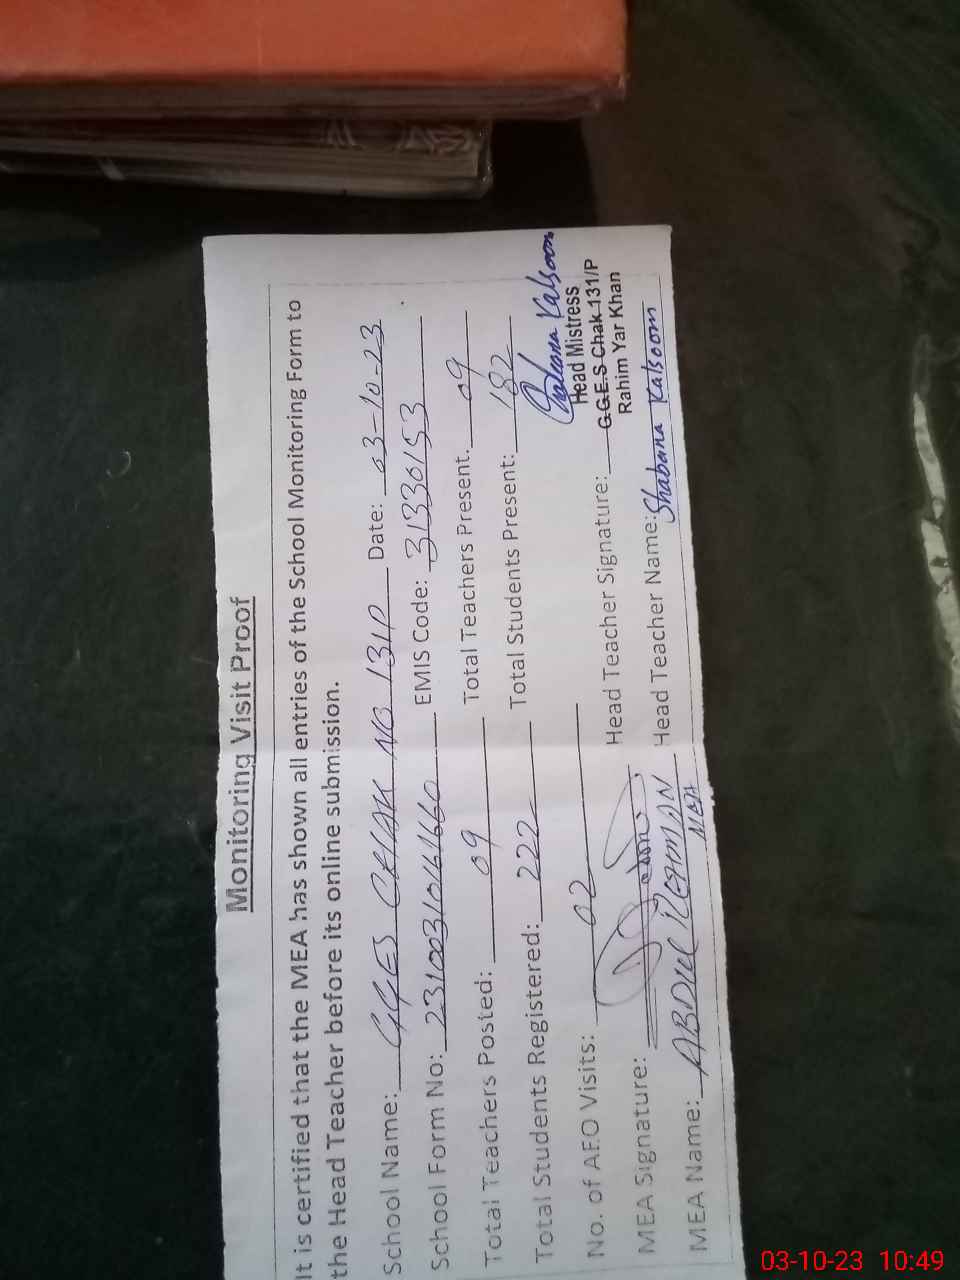 Monitoring Visit Proof
It is certified that the MEA has shown all entries of the School Monitoring Form to
the Head Teacher before its online submission.
School Name: GGES CHAK NO 131P Date: 03-10-23
School Form No: EMIS Code: 31330153
Total Teachers Posted: 09 Total Teachers Present. 09
Total Students Registered: 222 Total Students Present: 182
No. of AEO Visits: 02
Kalsoom
Head Mistress
G.G.E.S Chak 131/P
Rahim Yar Khan
MEA Signature: Head Teacher Signature:
MEA Name: ABDUL REHMAN Head Teacher Name: Shabana Kalsoom
MEA
03-10-23 10:49